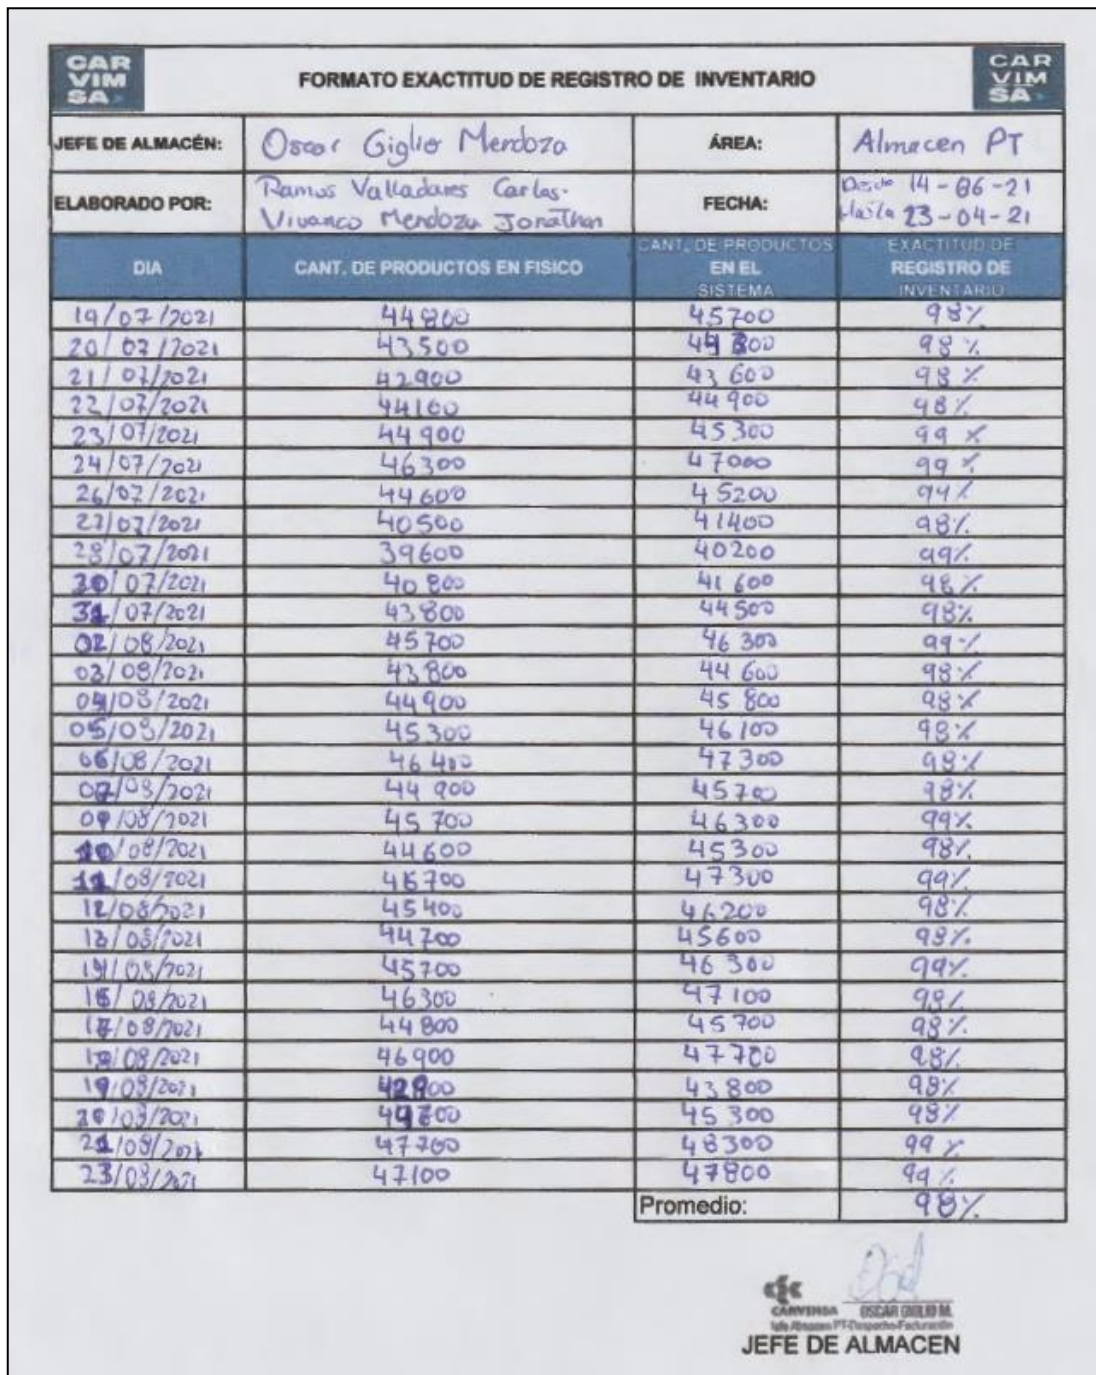 CAR
VIM
SA
FORMATO EXACTITUD DE REGISTRO DE INVENTARIO
CAR
VIM
SA
JEFE DE ALMACÉN: Oscar Giglio Mendoza ÁREA: Almacen PT
ELABORADO POR: Ramos Valladares Carlos.
Vivanco Mendoza Jonathan
FECHA: Desde 14-06-21
Hasta 23-04-21
DIA CANT. DE PRODUCTOS EN FISICO CANT. DE PRODUCTOS EN EL SISTEMA EXACTITUD DE REGISTRO DE INVENTARIO
19/07/2021 44800 45700 98%
20/07/2021 43500 98%
21/07/2021 42900 43600 98%
22/07/2021 44100 44900 98%
23/07/2021 44900 45300 99%
24/07/2021 46300 47000 99%
26/07/2021 44600 45200 99%
27/07/2021 40500 41400 98%
28/07/2021 39600 40200 99%
30/07/2021 40800 41600 98%
31/07/2021 43800 44500 98%
02/08/2021 45700 46300 99%
03/08/2021 43800 44600 98%
04/08/2021 44900 45800 98%
05/08/2021 45300 46100 98%
06/08/2021 46400 47300 98%
07/08/2021 44900 45700 98%
09/08/2021 45700 46300 99%
10/08/2021 44600 45300 98%
11/08/2021 46700 47300 99%
12/08/2021 45400 46200 98%
13/08/2021 44700 45600 98%
14/08/2021 45700 46300 99%
16/08/2021 46300 47100 98%
17/08/2021 44800 45700 98%
18/08/2021 46900 47700 98%
19/08/2021 43800 98%
20/08/2021 45300 98%
21/08/2021 47700 48300 99%
23/08/2021 47100 47800 99%
Promedio: 98%
CARVIMSA OSCAR GIGLIO M.
Jefe Almacen PT-Despacho-Facturación
JEFE DE ALMACEN